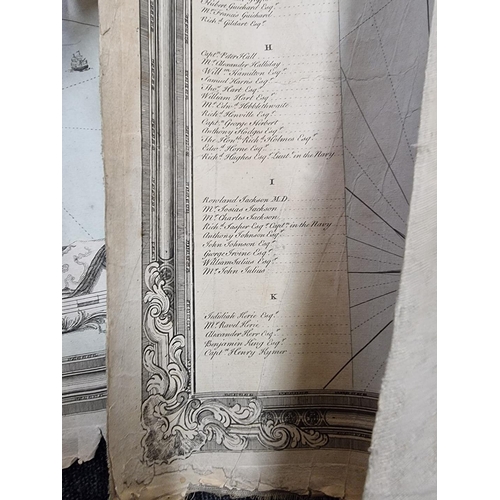 Hubert Guichard Esqr.
Mr. Francis Guichard
Richd. Gildart Esqr.
H
Captn. Peter Hall
Mr. Alexander Halliday
Willm. Hamilton Esqr.
Samuel Harris Esqr.
Thos. Hart Esqr.
William Hart Esqr.
Mr. Edwd. Hebblethwaite
Richd. Henville Esqr.
Captn. George Herbert
Anthony Hodges Esqr.
The Honble. Richd. Holmes Esqr.
Edwd. Horne Esqr.
Richd. Hughes Esqr. Lieutt. in the Navy
I
Rowland Jackson M.D.
Mr. Josias Jackson
Mr. Charles Jackson
Richd. Jasper Esqr. Captn. in the Navy
Anthony Johnson Esqr.
John Johnson Esqr.
George Irvine Esqr.
William Julius Esqr.
Mr. John Julius
K
Mr. Ravd. Kerie
Alexander Kerr Esqr.
Benjamin King Esqr.
Captn. Henry Kymer